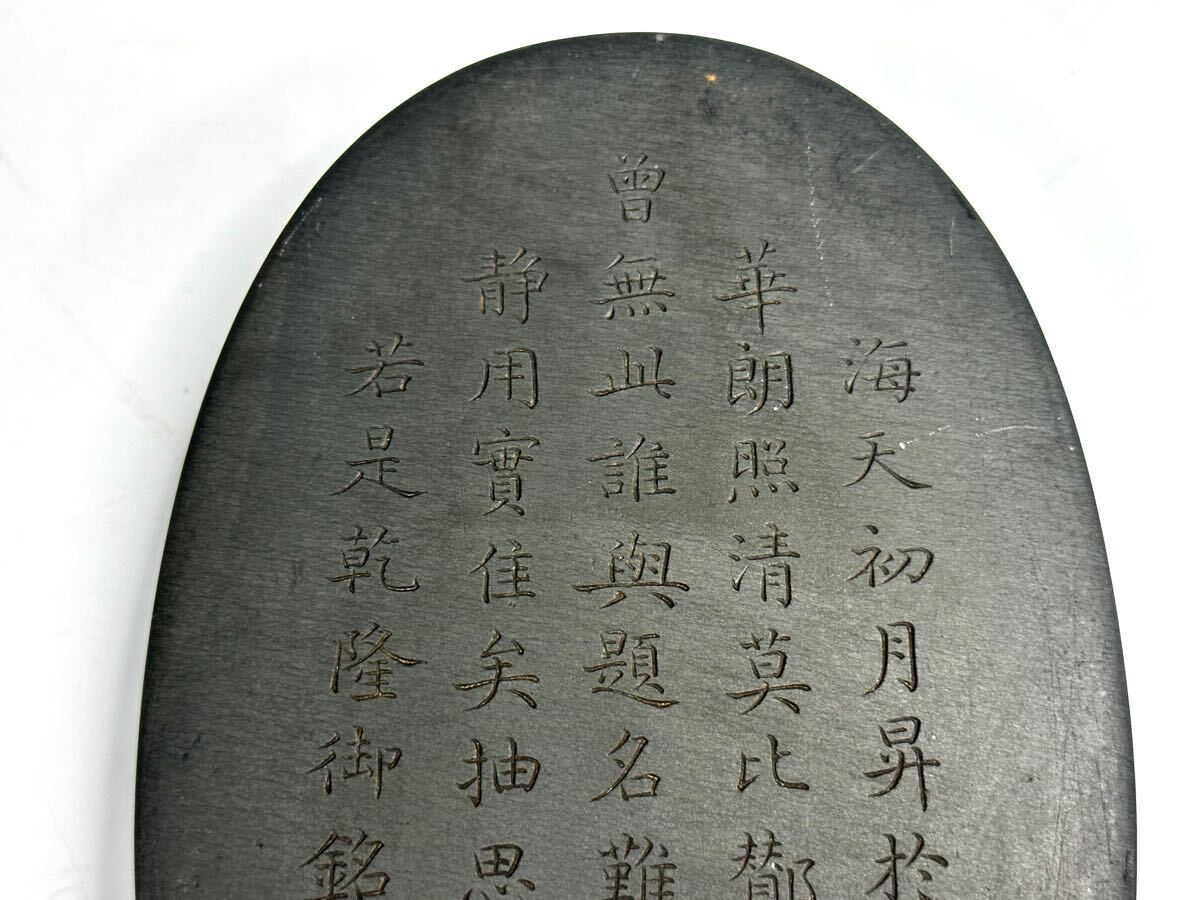 海天初月昇於
華朗照清莫比
曾無此誰與題名難
静用實佳矣抽思
若是乾隆御銘